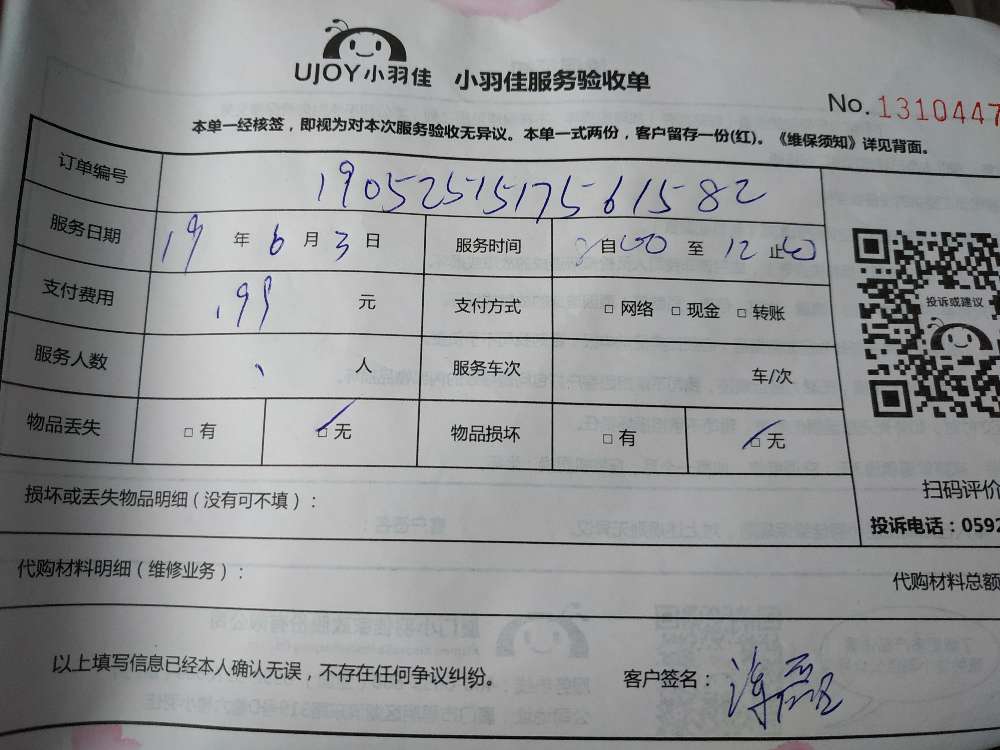 UJOY小羽佳 小羽佳服务验收单
No. 1310447
本单一经核签，即视为对本次服务验收无异议。本单一式两份，客户留存一份(红)。《维保须知》详见背面。
订单编号 190525151756 1582
服务日期 19 年 6 月 3 日 服务时间 自 至 12 止
支付费用 .99 元 支付方式 □ 网络 □ 现金 □ 转账
服务人数 、 人 服务车次 车/次
物品丢失 □ 有 □ 无 物品损坏 □ 有 □ 无
投诉或建议
损坏或丢失物品明细（没有可不填）：
扫码评价
投诉电话：0592
代购材料明细（维修业务）：
代购材料总额
以上填写信息已经本人确认无误，不存在任何争议纠纷。 客户签名：